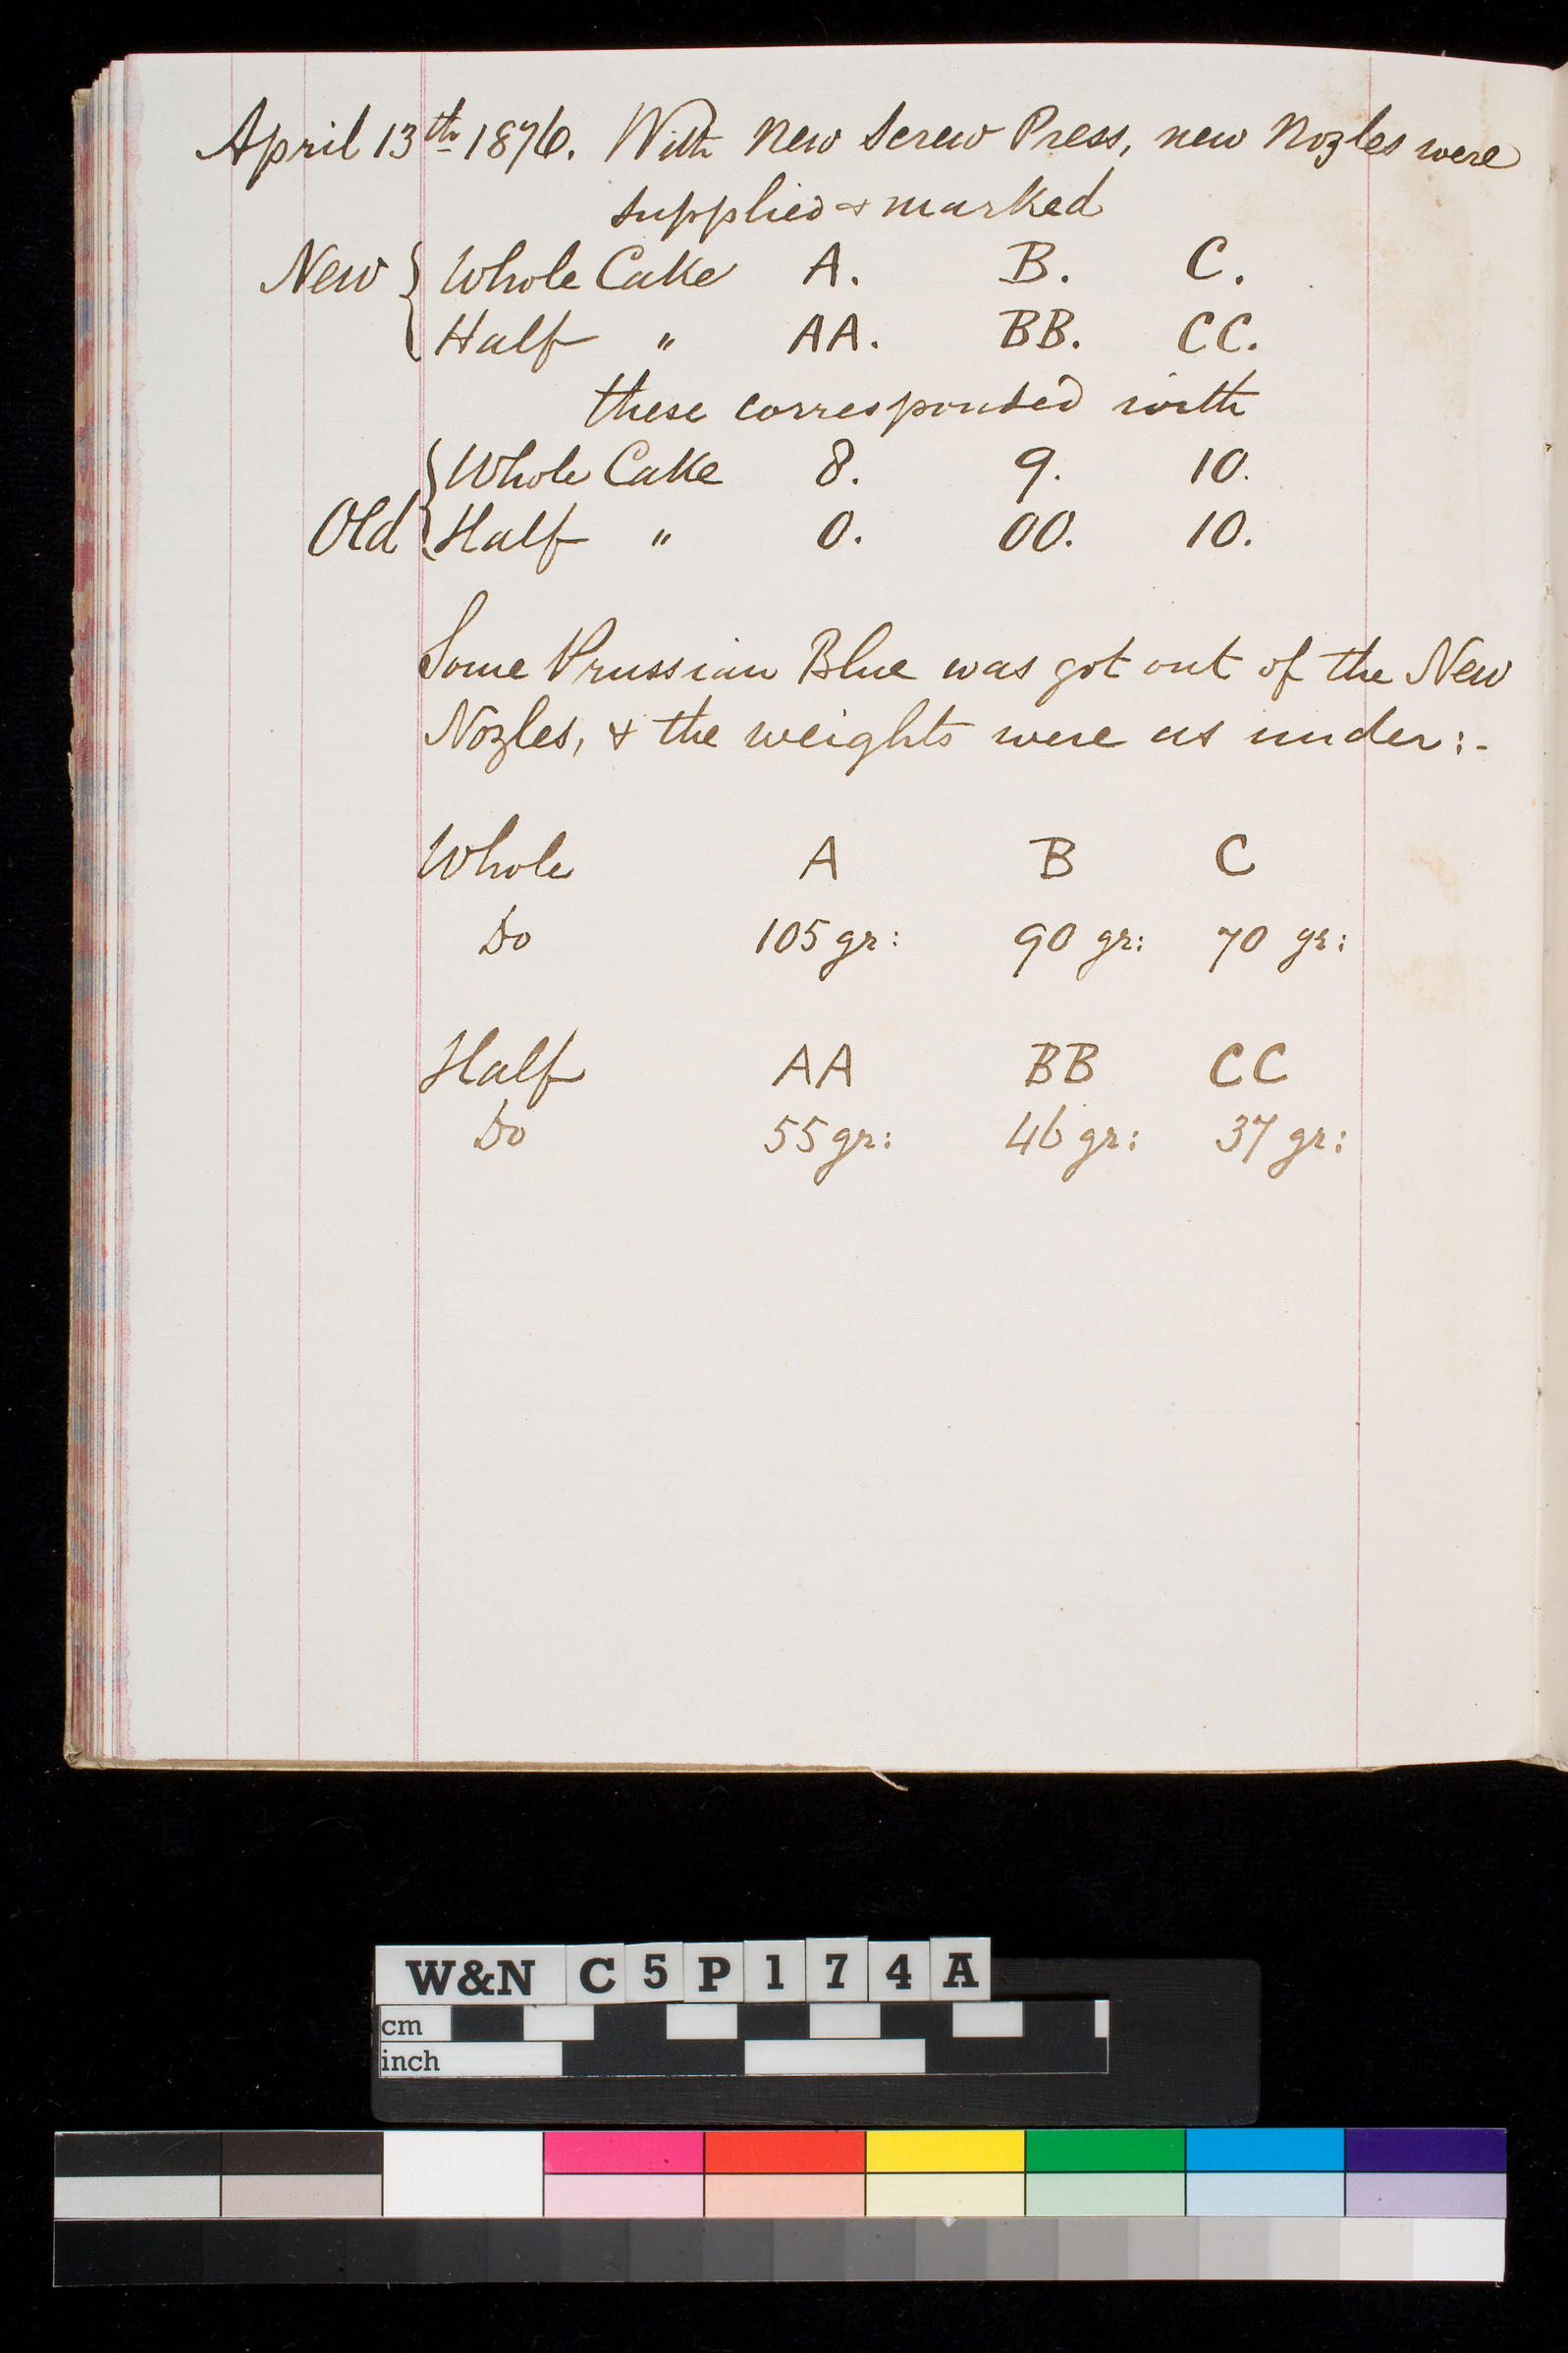 April 13th 1876. With New Screw Press, new Nozles were
supplied & marked
New { Whole Cake A. B. C.
Half " AA. BB. CC.
these corresponded with
Whole Cake 8. 9. 10.
Old { Half " 0. 00. 10.
Some Prussian Blue was got out of the New
Nozles, & the weights were as under:-
Whole A B C
Do 105 gr: 90 gr: 70 gr:
Half AA BB CC
Do 55 gr: 46 gr: 37 gr:
W&N C5P174A
cm
inch